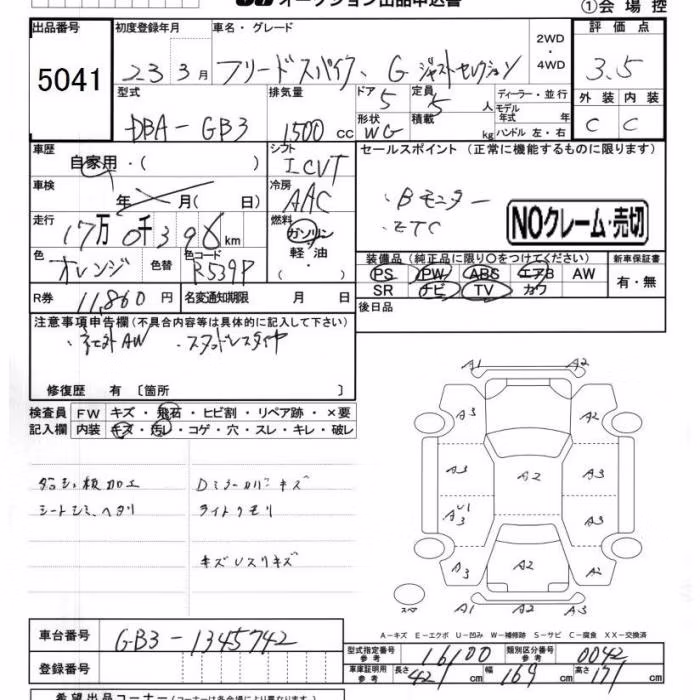 オークション出品申込書
①会場控
出品番号
5041
初度登録年月
23 3月
車名・グレード
フリードスパイク、G ジャストセレクション
2WD
・
4WD
評価点
3.5
外装 内装
C C
型式
DBA-GB3
排気量
1500 cc
ドア 5
定員 5 人
ディーラー・並行
モデル
年式 年
形状 WG
積載 kg
ハンドル 左・右
車歴
自家用・( )
シフト
ICVT
車検
年 月( 日)
冷房
AAC
走行
17万0千396km
燃料
ガソリン
軽油
色
オレンジ
色替
色コード
R539P
R券 11,860円
名変通知期限 月 日
セールスポイント (正常に機能するものに限ります)
・Bモニター
・ETC
NOクレーム・売切
装備品 (純正品に限り〇をつけてください)
PS PW ABS エアB AW
SR ナビ TV カワ
新車保証書
有・無
後日品
注意事項申告欄(不具合内容等は具体的に記入して下さい)
・社外AW ・スタッドレスタイヤ
修復歴 有 〔箇所 〕
検査員
記入欄
FW キズ・飛石・ヒビ割・リペア跡・×要
内装 キズ・汚レ・コゲ・穴・スレ・キレ・破レ
ダッシュ板加工
シートシミ、ヘタリ
Dミラーカバーキズ
ライトクモリ
キズUスリキズ
A1 A2
A3 A2
A3 A2 A3
A3 U1 A3
A3 A2 A2
スペ
A1 A2 A3
A-キズ E-エクボ U-凹み W-補修跡 S-サビ C-腐食 XX-交換済
車台番号
GB3-1345742
登録番号
型式指定番号
参考
16100
類別区分番号
参考
0042
車庫証明用
参考
長さ 421 cm
幅 169 cm
高さ 171 cm
希望出品コーナー